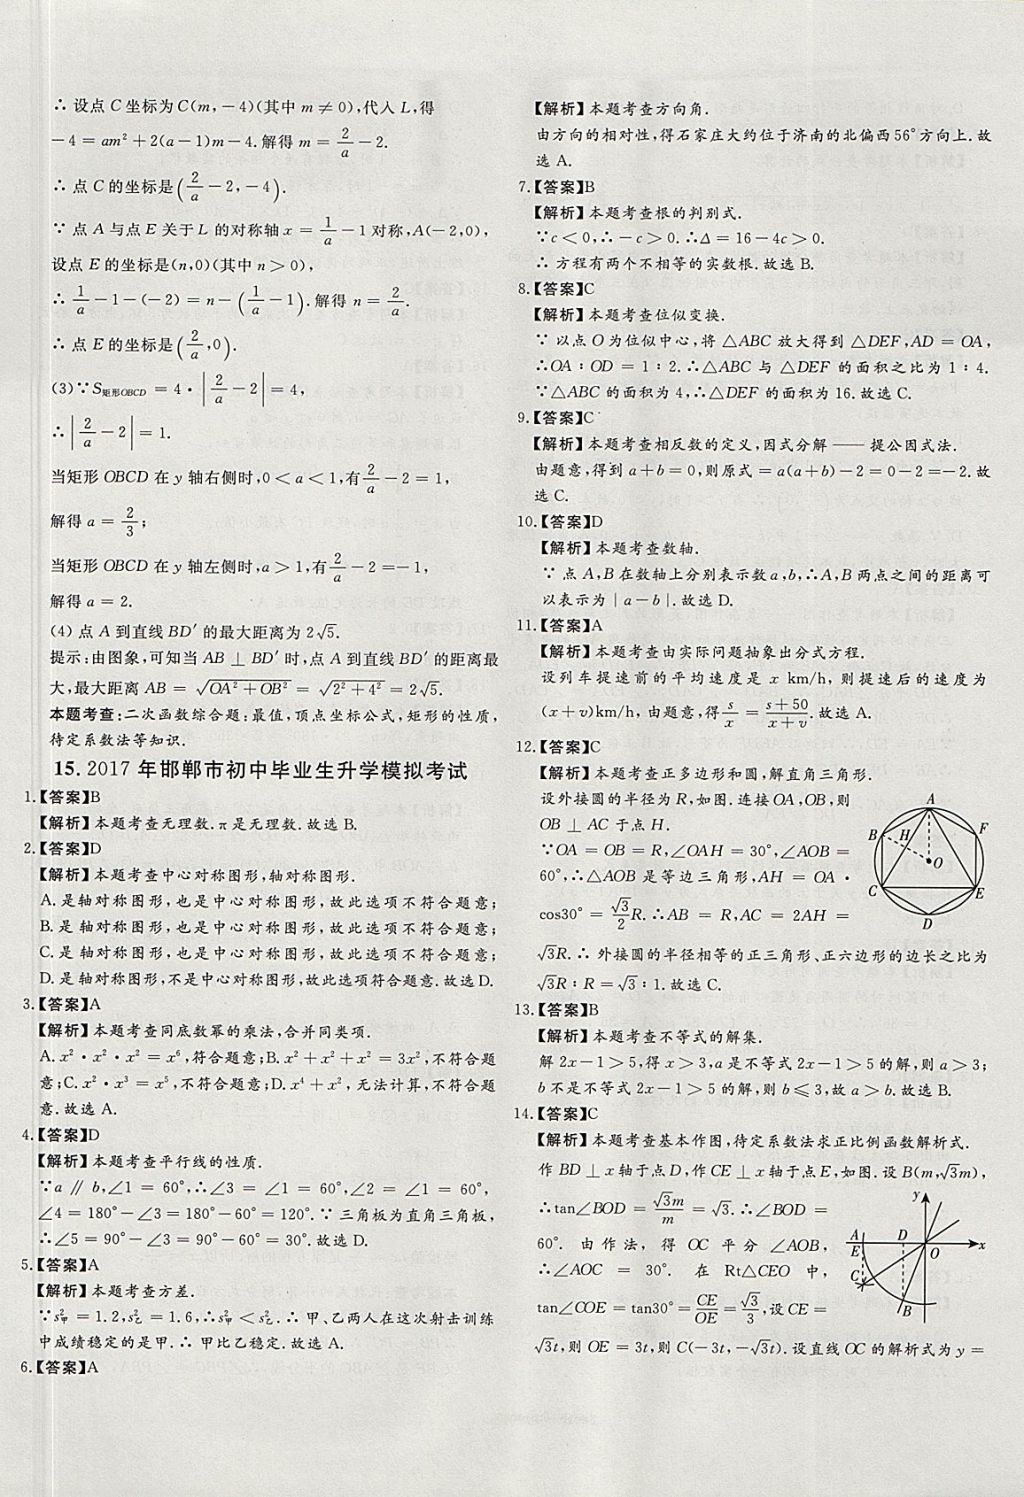 ∴ 设点 C 坐标为 C(m,-4)(其中 m≠0),代入 L,得
-4=am²+2(a-1)m-4.解得 m=2/a-2.
∴ 点 C 的坐标是(2/a-2,-4).
∵ 点 A 与点 E 关于 L 的对称轴 x=1/a-1 对称,A(-2,0),
设点 E 的坐标是(n,0)(其中 n>0),
∴ 1/a-1-(-2)=n-(1/a-1).解得 n=2/a.
∴ 点 E 的坐标是(2/a,0).
(3)∵S矩形OBCD=4·|2/a-2|=4,
∴|2/a-2|=1.
当矩形 OBCD 在 y 轴右侧时,0<a<1,有2/a-2=1,
解得 a=2/3;
当矩形 OBCD 在 y 轴左侧时,a>1,有2/a-2=-1,
解得 a=2.
(4) 点 A 到直线 BD′ 的最大距离为 2√5.
提示:由图象,可知当 AB⊥BD′ 时,点 A 到直线 BD′ 的距离最
大,最大距离 AB=√(OA²+OB²)=√(2²+4²)=2√5.
本题考查:二次函数综合题:最值,顶点坐标公式,矩形的性质,
待定系数法等知识.
15.2017 年邯郸市初中毕业生升学模拟考试
1.【答案】B
【解析】本题考查无理数.π是无理数.故选 B.
2.【答案】D
【解析】本题考查中心对称图形,轴对称图形.
A.是轴对称图形,也是中心对称图形,故此选项不符合题意;
B.是轴对称图形,也是中心对称图形,故此选项不符合题意;
C.是轴对称图形,也是中心对称图形,故此选项不符合题意;
D.是轴对称图形,不是中心对称图形,故此选项符合题意.故选 D.
3.【答案】A
【解析】本题考查同底数幂的乘法,合并同类项.
A.x²·x²·x²=x⁶,符合题意;B.x²+x²+x²=3x²,不符合题
意;C.x²·x³=x⁵,不符合题意;D.x⁴+x²,无法计算,不符合题
意.故选 A.
4.【答案】D
【解析】本题考查平行线的性质.
∵a∥b,∠1=60°,∴∠3=∠1=60°,∠2=∠1=60°,
∠4=180°-∠3=180°-60°=120°.∵ 三角板为直角三角板,
∴∠5=90°-∠3=90°-60°=30°.故选 D.
5.【答案】A
【解析】本题考查方差.
∵s²甲=1.2,s²乙=1.6,∴s²甲<s²乙.∴ 甲、乙两人在这次射击训练
中成绩稳定的是甲.∴ 甲比乙稳定.故选 A.
6.【答案】A
【解析】本题考查方向角.
由方向的相对性,得石家庄大约位于济南的北偏西 56°方向上.故
选 A.
7.【答案】B
【解析】本题考查根的判别式.
∵c<0,∴-c>0.∴Δ=16-4c>0.
∴ 方程有两个不相等的实数根.故选 B.
8.【答案】C
【解析】本题考查位似变换.
∵ 以点 O 为位似中心,将 △ABC 放大得到 △DEF,AD=OA,
∴OA∶OD=1∶2.∴△ABC 与 △DEF 的面积之比为 1∶4.
∵△ABC 的面积为 4,∴△DEF 的面积为 16.故选 C.
9.【答案】C
【解析】本题考查相反数的定义,因式分解——提公因式法.
由题意,得到 a+b=0,则原式=a(a+b)-2=0-2=-2.故
选 C.
10.【答案】D
【解析】本题考查数轴.
∵ 点 A,B 在数轴上分别表示数 a,b,∴A,B 两点之间的距离可
以表示为|a-b|.故选 D.
11.【答案】A
【解析】本题考查由实际问题抽象出分式方程.
设列车提速前的平均速度是 x km/h,则提速后的速度为
(x+v)km/h,由题意,得s/x=(s+50)/(x+v).故选 A.
12.【答案】C
【解析】本题考查正多边形和圆,解直角三角形.
设外接圆的半径为 R,如图.连接 OA,OB,则
OB⊥AC 于点 H.
∵OA=OB=R,∠OAH=30°,∠AOB=
60°,∴△AOB 是等边三角形,AH=OA·
cos30°=√3/2R.∴AB=R,AC=2AH=
√3R.∴ 外接圆的半径相等的正三角形、正六边形的边长之比为
√3R∶R=√3∶1.故选 C.
A
B
H
F
O
C
E
D
13.【答案】B
【解析】本题考查不等式的解集.
解 2x-1>5,得 x>3,a 是不等式 2x-1>5 的解,则 a>3;
b 不是不等式 2x-1>5 的解,则 b⩽3,故 a>b.故选 B.
14.【答案】C
【解析】本题考查基本作图,待定系数法求正比例函数解析式.
作 BD⊥x 轴于点 D,作 CE⊥x 轴于点 E,如图.设 B(m,√3m),
∴tan∠BOD=√3m/m=√3.∴∠BOD=
60°.由作法,得 OC 平分∠AOB,
∴∠AOC=30°.在 Rt△CEO 中,
tan∠COE=tan30°=CE/OE=√3/3,设 CE=
√3t,则 OE=3t,则 C(-3t,-√3t).设直线 OC 的解析式为 y=
y
A
D
E
O
x
C
B